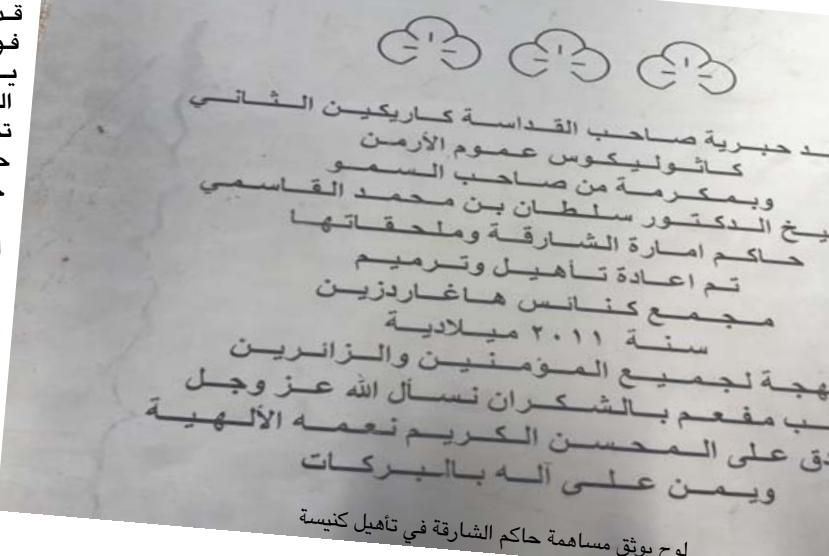 حبرية صاحب القداسة كاريكين الثاني
كاثوليكوس عموم الأرمن
وبمكرمة من صاحب السمو
الدكتور سلطان بن محمد القاسمي
حاكم امارة الشارقة وملحقاتها
تم اعادة تأهيل وترميم
مجمع كنائس هاغاردزين
سنة ٢٠١١ ميلادية
لجميع المؤمنين والزائرين
مفعم بالشكران نسأل الله عز وجل
على المحسن الكريم نعمه الألهية
ويمن على آله بالبركات
لوح يوثق مساهمة حاكم الشارقة في تأهيل كنيسة